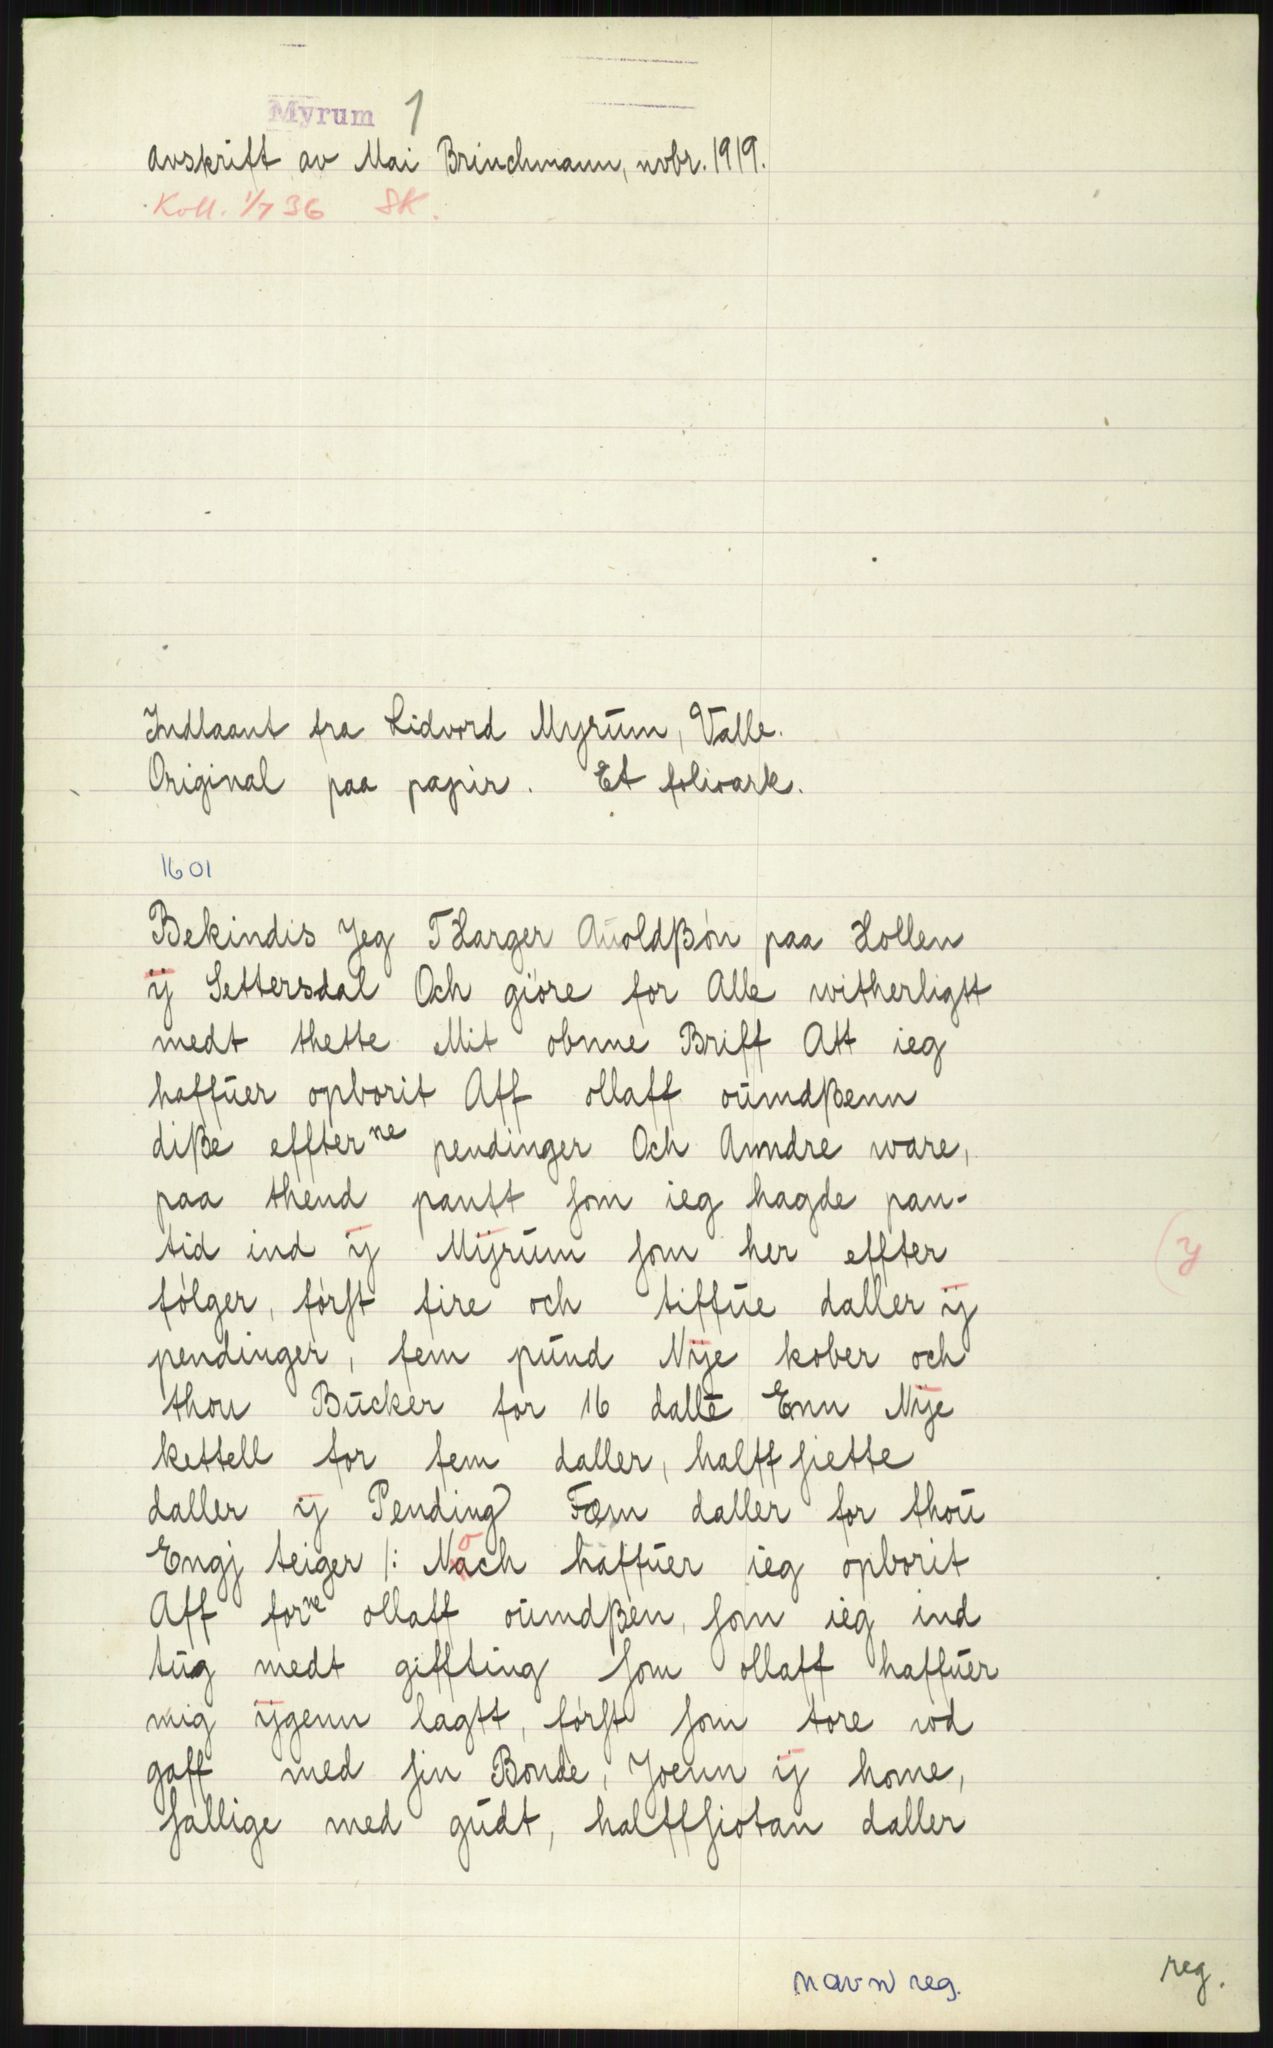 Myrum 1
avskrift av Mai Brinchmann, novbr. 1919.
Koll. 1/7 36 SK.
Indlaant fra Lidvord Myrum, Valle.
Original paa papir. Et folioark.
1601
Bekindis Jeg THarger Auoldßön paa Hollen
ÿ Settersdal Och giöre for Alle witherligtt
medt thette Mit obnne Briff Att ieg
haffuer opborit Aff ollaff oumdßenn
diße effterne pendinger Och Anndre ware,
paa thend pantt som ieg hagde pan-
tid ind ÿ Mÿrum som her effter
fölger, först fire och tiffue daller ÿ
pendinger, fem pund Nÿe kober och
thou Bucker for 16 dalle Enn Nÿe
kettell for fem daller, halff siette
daller ÿ Pending Fæm daller for thou
Engj teiger /: Noch haffuer ieg opborit
Aff forne ollaff oumdßen, som ieg ind
tug medt giffting som ollaff haffuer
mig ÿgenn lagtt, först som tore wd
gaff med sin Bonde, Joenn ÿ home,
sallige med gudt, halffsiotan daller
(y
navn reg.
reg.